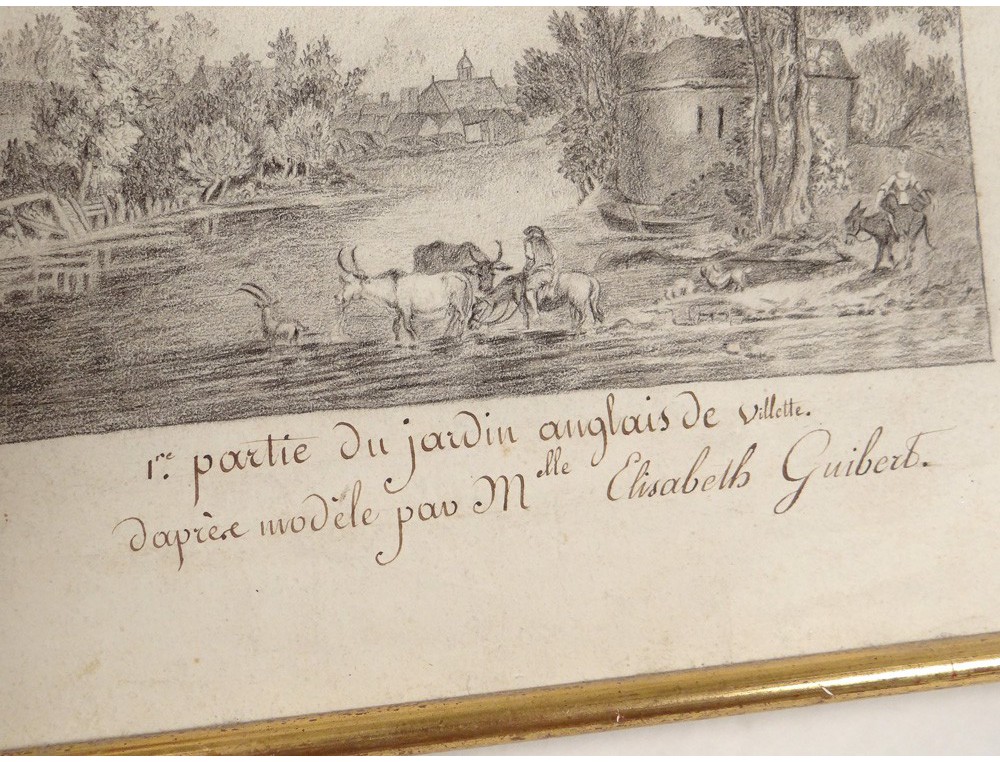 1.re partie du jardin anglais de villette.
daprès modèle par Mlle Elisabeth Guibert.